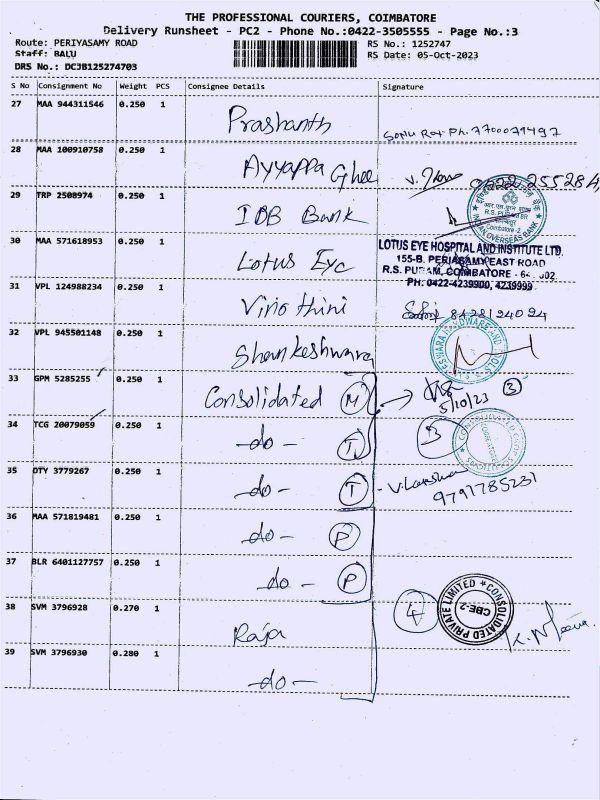 THE PROFESSIONAL COURIERS, COIMBATORE
Delivery Runsheet - PC2 - Phone No.:0422-3505555 - Page No.:3
Route: PERIYASAMY ROAD
Staff: BALU
DRS No.: DCJB125274703
RS No.: 1252747
RS Date: 05-Oct-2023
S No Consignment No Weight PCS Consignee Details Signature
27 MAA 944311546 0.250 1 Prashanth Sonu Raj Ph. 7700079497
28 MAA 100910758 0.250 1 Ayyappa Ghee
29 TRP 2508974 0.250 1 IOB Bank
R.S. PURAM BR
Coimbatore -2
INDIAN OVERSEAS BANK
30 MAA 571618953 0.250 1 Lotus Eye
LOTUS EYE HOSPITAL AND INSTITUTE LTD.
155-B, PERIASAMY EAST ROAD
R.S. PURAM, COIMBATORE - 641 002.
PH: 0422-4239900, 4239999
31 VPL 124988234 0.250 1 Virio thini 8428124024
32 VPL 945501148 0.250 1 Shankeshwara
33 GPM 5285255 0.250 1 Consolidated M 5/10/23 3
34 TCG 20079059 0.250 1 -do- T 3
35 DTY 3779267 0.250 1 -do- T
9791785231
36 MAA 571819481 0.250 1 -do- P
37 BLR 6401127757 0.250 1 -do- P
38 SVM 3796928 0.270 1 Raja 4
CONSOLIDATED PRIVATE LIMITED
CBE-2
39 SVM 3796930 0.280 1 -do-